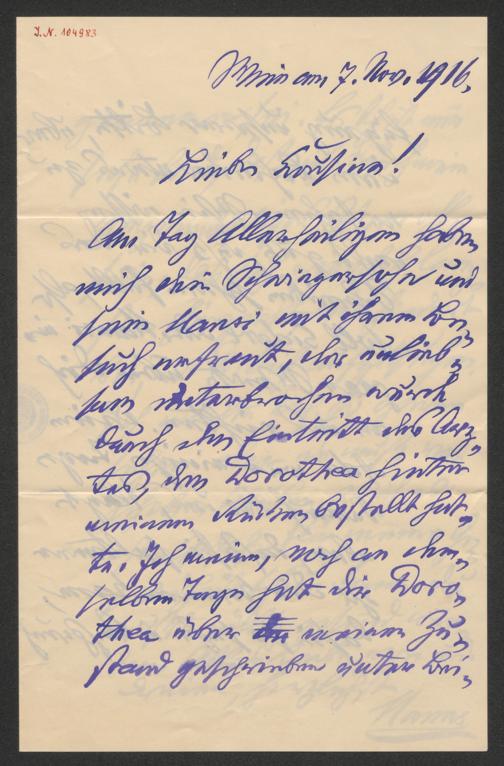 I.N. 104983
Wien am 7. Nov. 1916.
Liebe Cousine!
Am Tag Allerheiligen haben
mich dein Schwiegersohn und
sein Hansi mit ihrem Be-
such erfreut, der unlieb-
sam unterbrochen wurde
durch den Eintritt des Arz-
tes, den Dorothea hinter
meinem Rücken bestellt hat-
te. Ich meine, noch an dem-
selben Tage hat dir Doro-
thea über meinen Zu-
stand geschrieben unter Bei-